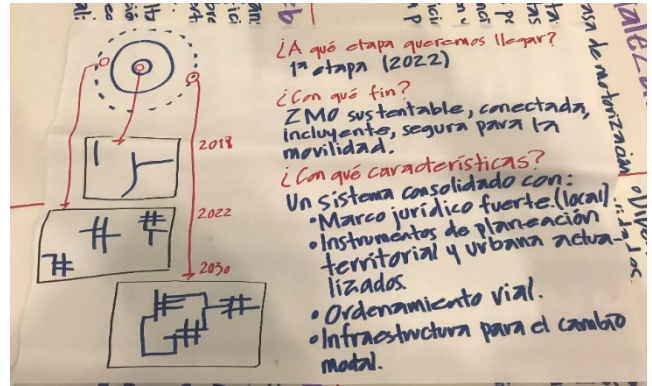 ¿A qué etapa queremos llegar?
1ª etapa (2022)
¿Con qué fin?
ZMO sustentable, conectada,
incluyente, segura para la
movilidad.
¿Con qué características?
Un sistema consolidado con:
• Marco jurídico fuerte.(local)
• Instrumentos de planeación
territorial y urbana actua-
lizados.
• Ordenamiento vial.
• Infraestructura para el cambio
modal.
2018
2022
2030
asa de motorización